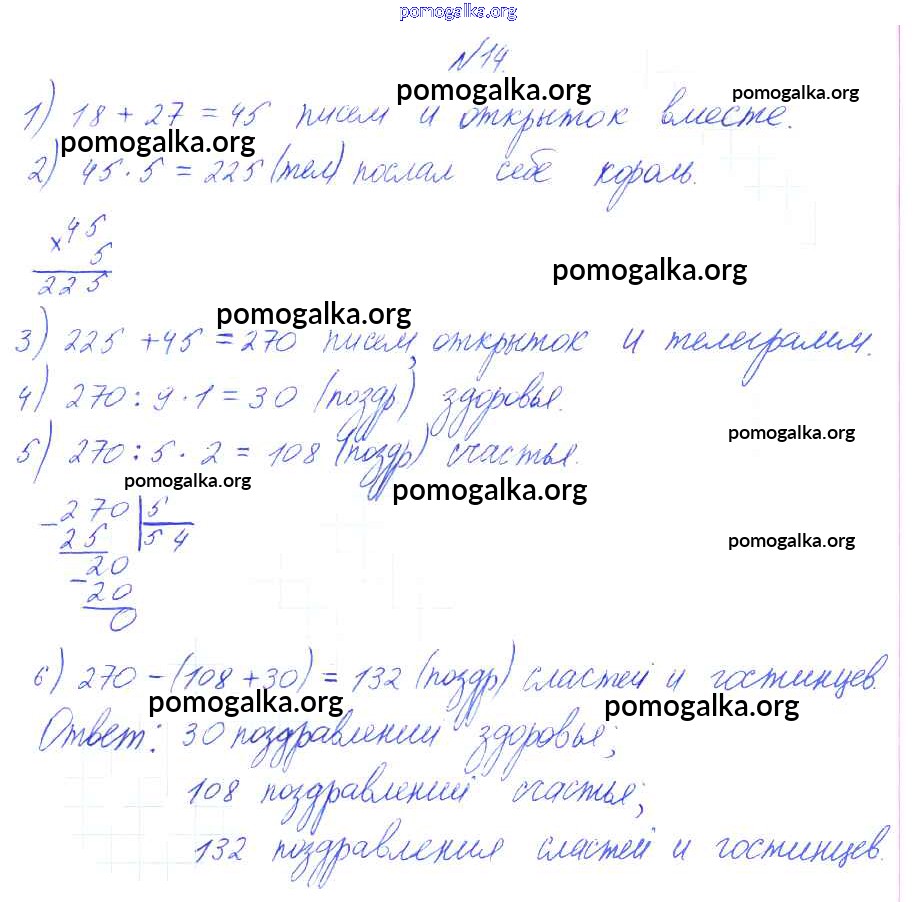 pomogalka.org
№14.
pomogalka.org pomogalka.org
1) 18 + 27 = 45 писем и открыток вместе.
pomogalka.org
2) 45 · 5 = 225 (тел) послал себе король.
× 45
5
225
pomogalka.org
pomogalka.org
3) 225 + 45 = 270 писем, открыток и телеграмм.
4) 270 : 9 · 1 = 30 (поздр) здоровья.
pomogalka.org
5) 270 : 5 · 2 = 108 (поздр) счастья.
pomogalka.org pomogalka.org
- 270 | 5
25 | 54
- 20
20
0
pomogalka.org
6) 270 - (108 + 30) = 132 (поздр) сластей и гостинцев.
pomogalka.org pomogalka.org
Ответ: 30 поздравлений здоровья;
108 поздравлений счастья;
132 поздравления сластей и гостинцев.